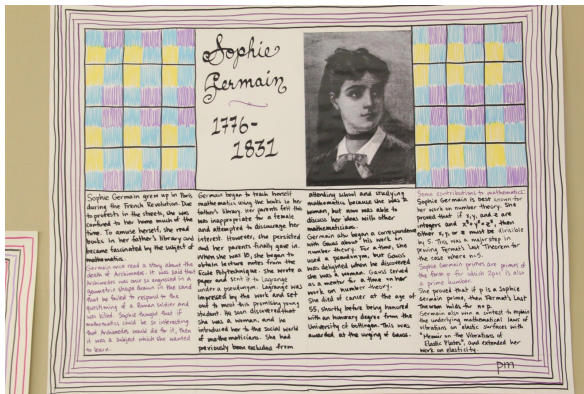 Sophie
Germain
1776-
1831
Sophie Germain grew up in Paris
during the French Revolution. Due
to protests in the streets, she was
confined to her home much of the
time. To amuse herself, she read
books in her father's library and
became fascinated by the subject of
mathematics.
Germain once read a story about the
death of Archimedes. It was said that
Archimedes was so engrossed in a
geometric shape drawn in the sand
that he failed to respond to the
questioning of a Roman soldier and
was killed. Sophie thought that if
mathematics could be so interesting
that Archimedes would die for it, then
it was a subject which she wanted
to learn.
Germain began to teach herself
mathematics using the books in her
father's library. Her parents felt this
was inappropriate for a female
and attempted to discourage her
interest. However, she persisted
and her parents finally gave in.
When she was 18, she began to
obtain lecture notes from the
Ecole Polytechnique. She wrote a
paper and sent it to Lagrange
under a pseudonym. Lagrange was
impressed by the work and set
out to meet this promising young
student. He soon discovered that
she was a woman, and he
introduced her to the social world
of mathematicians. She had
previously been excluded from
attending school and studying
mathematics because she was a
woman, but now was able to
discuss her ideas with other
mathematicians.
Germain also began a correspondence
with Gauss about his work on
number theory. For a time, she
used a pseudonym, but Gauss
was delighted when he discovered
she was a woman. Gauss served
as a mentor for a time on her
work on number theory.
She died of cancer at the age of
55, shortly before being honored
with an honorary degree from the
University of Gottingen. This was
awarded at the urging of Gauss.
Some contributions to mathematics:
Sophie Germain is best known for
her work on number theory. She
proved that if x, y, and z are
integers and x⁵+y⁵=z⁵, then
either x, y, or z must be divisible
by 5. This was a major step in
proving Fermat's Last Theorem for
the case where n=5.
Sophie Germain primes are primes of
the form p for which 2p+1 is also
a prime number.
She proved that if p is a Sophie
Germain prime, then Fermat's Last
Theorem holds for n=p.
Germain also won a contest to explain
the underlying mathematical laws of
vibrations on elastic surfaces with
"Memoir on the Vibrations of
Elastic Plates", and extended her
work on elasticity.
pm